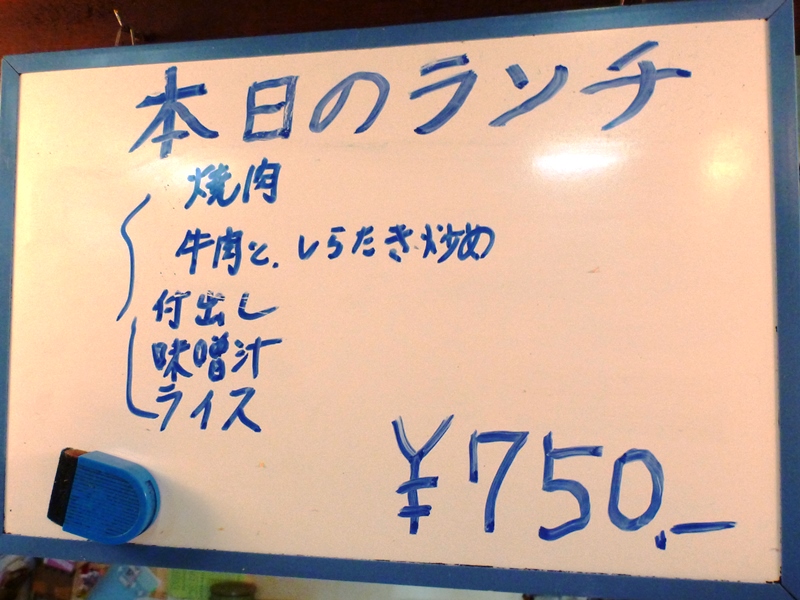 本日のランチ
焼肉
牛肉と、しらたき炒め
付出し
味噌汁
ライス
¥750.—